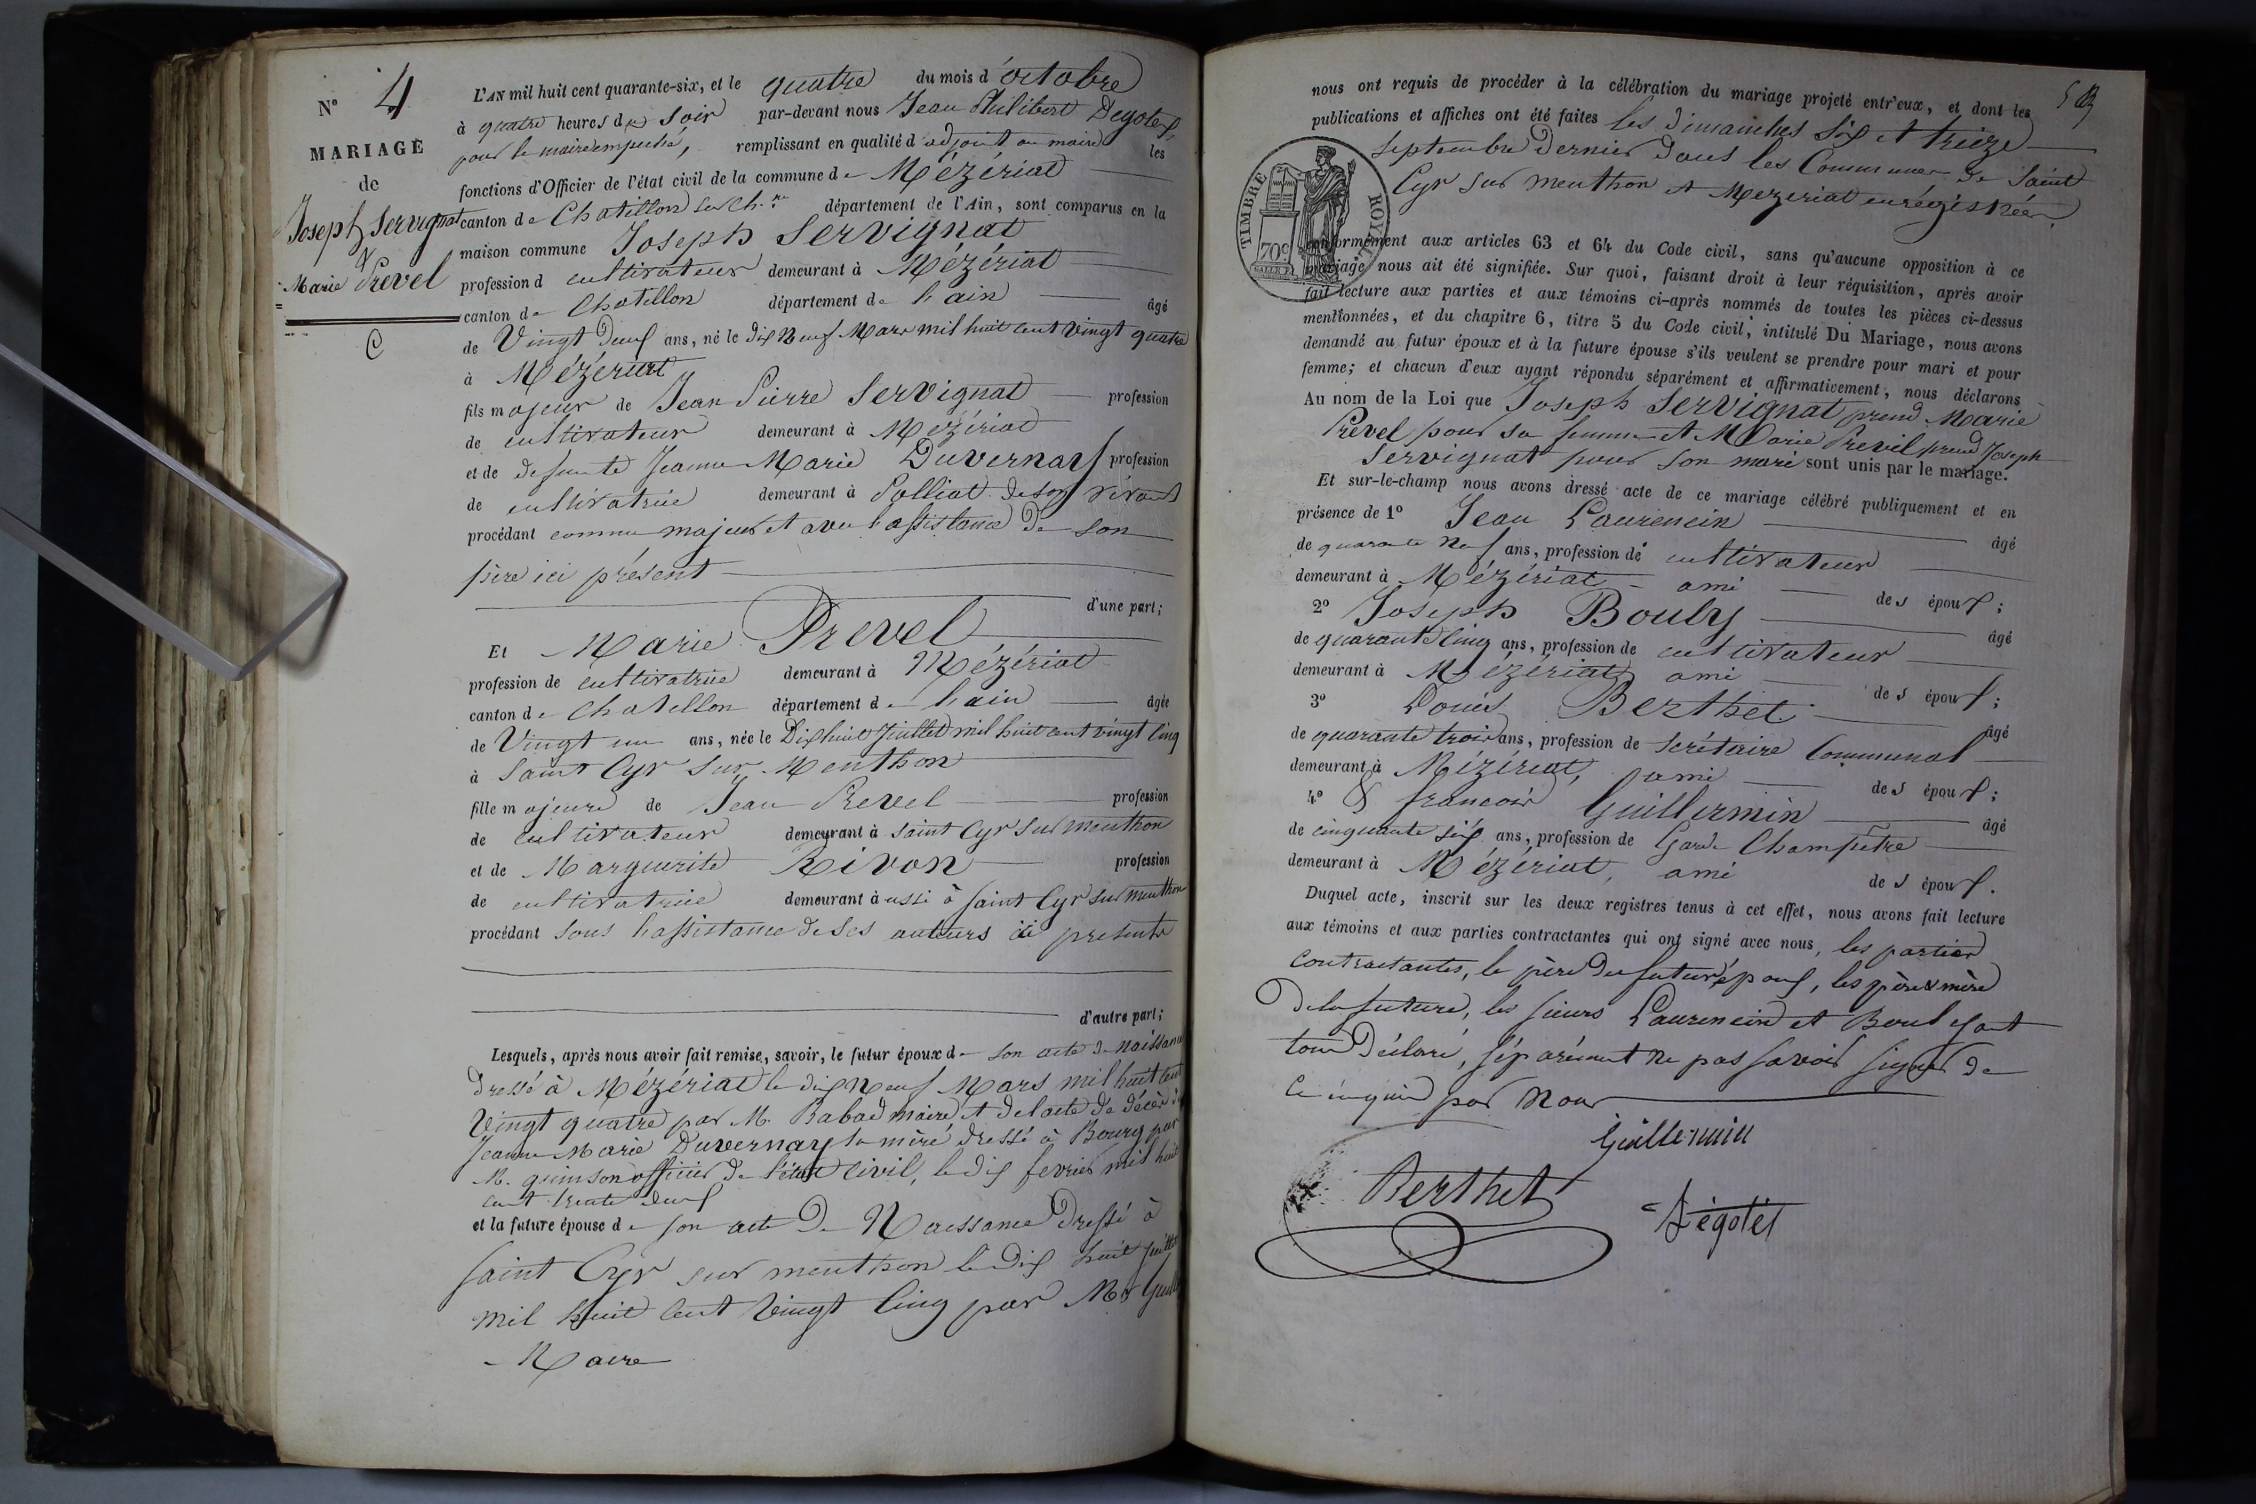 N° 4
MARIAGE
de
Joseph Servignat
&
Marie Prevel
C
L'AN mil huit cent quarante-six, et le quatre du mois d'octobre
à quatre heures du soir par-devant nous Jean Philibert Degolet,
pour le maire empeché, remplissant en qualité d'adjoint au maire les
fonctions d'Officier de l'état civil de la commune de Mézériat
canton de Chatillon sur Ch.ne département de l'Ain, sont comparus en la
maison commune Joseph Servignat
profession d cultivateur demeurant à Mézériat
canton de Chatillon département de l'ain âgé
de Vingt Deux ans, né le dix Neuf Mars mil huit cent vingt quatre
à Mézériat
fils majeur de Jean Pierre Servignat profession
de cultivateur demeurant à Mézériat
et de defunte Jeanne Marie Duvernay profession
de cultivatrice demeurant à Polliat de son vivant
procédant comme majeur et avec l'assistance de son
père ici présent
d'une part;
Et Marie Prevel
profession de cultivatrice demeurant à Mézériat
canton de Chatillon département de l'ain âgée
de Vingt un ans, née le Dix huit Juillet mil huit cent vingt cinq
à Saint Cyr Sur Menthon
fille majeure de Jean Prevel profession
de cultivateur demeurant à Saint Cyr Sur Menthon
et de Marguerite Rivon profession
de cultivatrice demeurant aussi à Saint Cyr Sur Menthon
procédant sous l'assistance de ses auteurs ici presents
d'autre part;
Lesquels, après nous avoir fait remise, savoir, le futur époux de son acte de naissance
dressé à Mézériat le dix Neuf Mars mil huit cent
Vingt quatre par M. Rabad maire et de l'acte de décès de
Jeanne Marie Duvernay sa mère dressé à Bourg par
M. quinson officier de l'état civil, le dix fevrier mil huit
cent trente deux
et la future épouse de son acte de Naissance dressé à
Saint Cyr sur menthon le dix huit juillet
mil huit cent vingt cinq par Mr
Maire
nous ont requis de procéder à la célébration du mariage projeté entr'eux, et dont les
publications et affiches ont été faites les Dimanches Six et treize
Septembre Dernier dans les Communes de Saint
Cyr sur menthon et Mezeriat enrégistrées
TIMBRE ROYAL
70c
conformément aux articles 63 et 64 du Code civil, sans qu'aucune opposition à ce
mariage nous ait été signifiée. Sur quoi, faisant droit à leur réquisition, après avoir
fait lecture aux parties et aux témoins ci-après nommés de toutes les pièces ci-dessus
mentionnées, et du chapitre 6, titre 5 du Code civil, intitulé Du Mariage, nous avons
demandé au futur époux et à la future épouse s'ils veulent se prendre pour mari et pour
femme; et chacun d'eux ayant répondu séparément et affirmativement, nous déclarons
Au nom de la Loi que Joseph Servignat prend Marie
Prevel pour sa femme et Marie Prevel prend Joseph
Servignat pour son mari sont unis par le mariage.
Et sur-le-champ nous avons dressé acte de ce mariage célébré publiquement et en
présence de 1° Jean Laurencin âgé
de quarante Neuf ans, profession de cultivateur
demeurant à Mézériat ami des époux;
2° Joseph Bouly âgé
de quarante Cinq ans, profession de cultivateur
demeurant à Mézériat ami des époux;
3° Louis Berthet âgé
de quarante trois ans, profession de Secrétaire Communal
demeurant à Mézériat, ami des époux;
4° & francois Guillermin âgé
de cinquante six ans, profession de Garde Champêtre
demeurant à Mézériat, ami des époux.
Duquel acte, inscrit sur les deux registres tenus à cet effet, nous avons fait lecture
aux témoins et aux parties contractantes qui ont signé avec nous, les parties
contractantes, le père du futur époux, les père & mère
de la future, les sieurs Laurencin et Bouly ont
tous Déclaré, séparément ne pas savoir signer de
ce enquis par Nous
Guillermin
Berthet
Dégolet